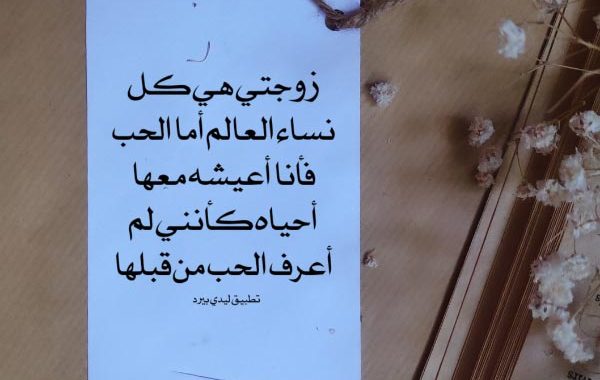 زوجتي هي كل
نساء العالم أما الحب
فأنا أعيشه معها
أحياه كأنني لم
أعرف الحب من قبلها
تطبيق ليدي بيرد